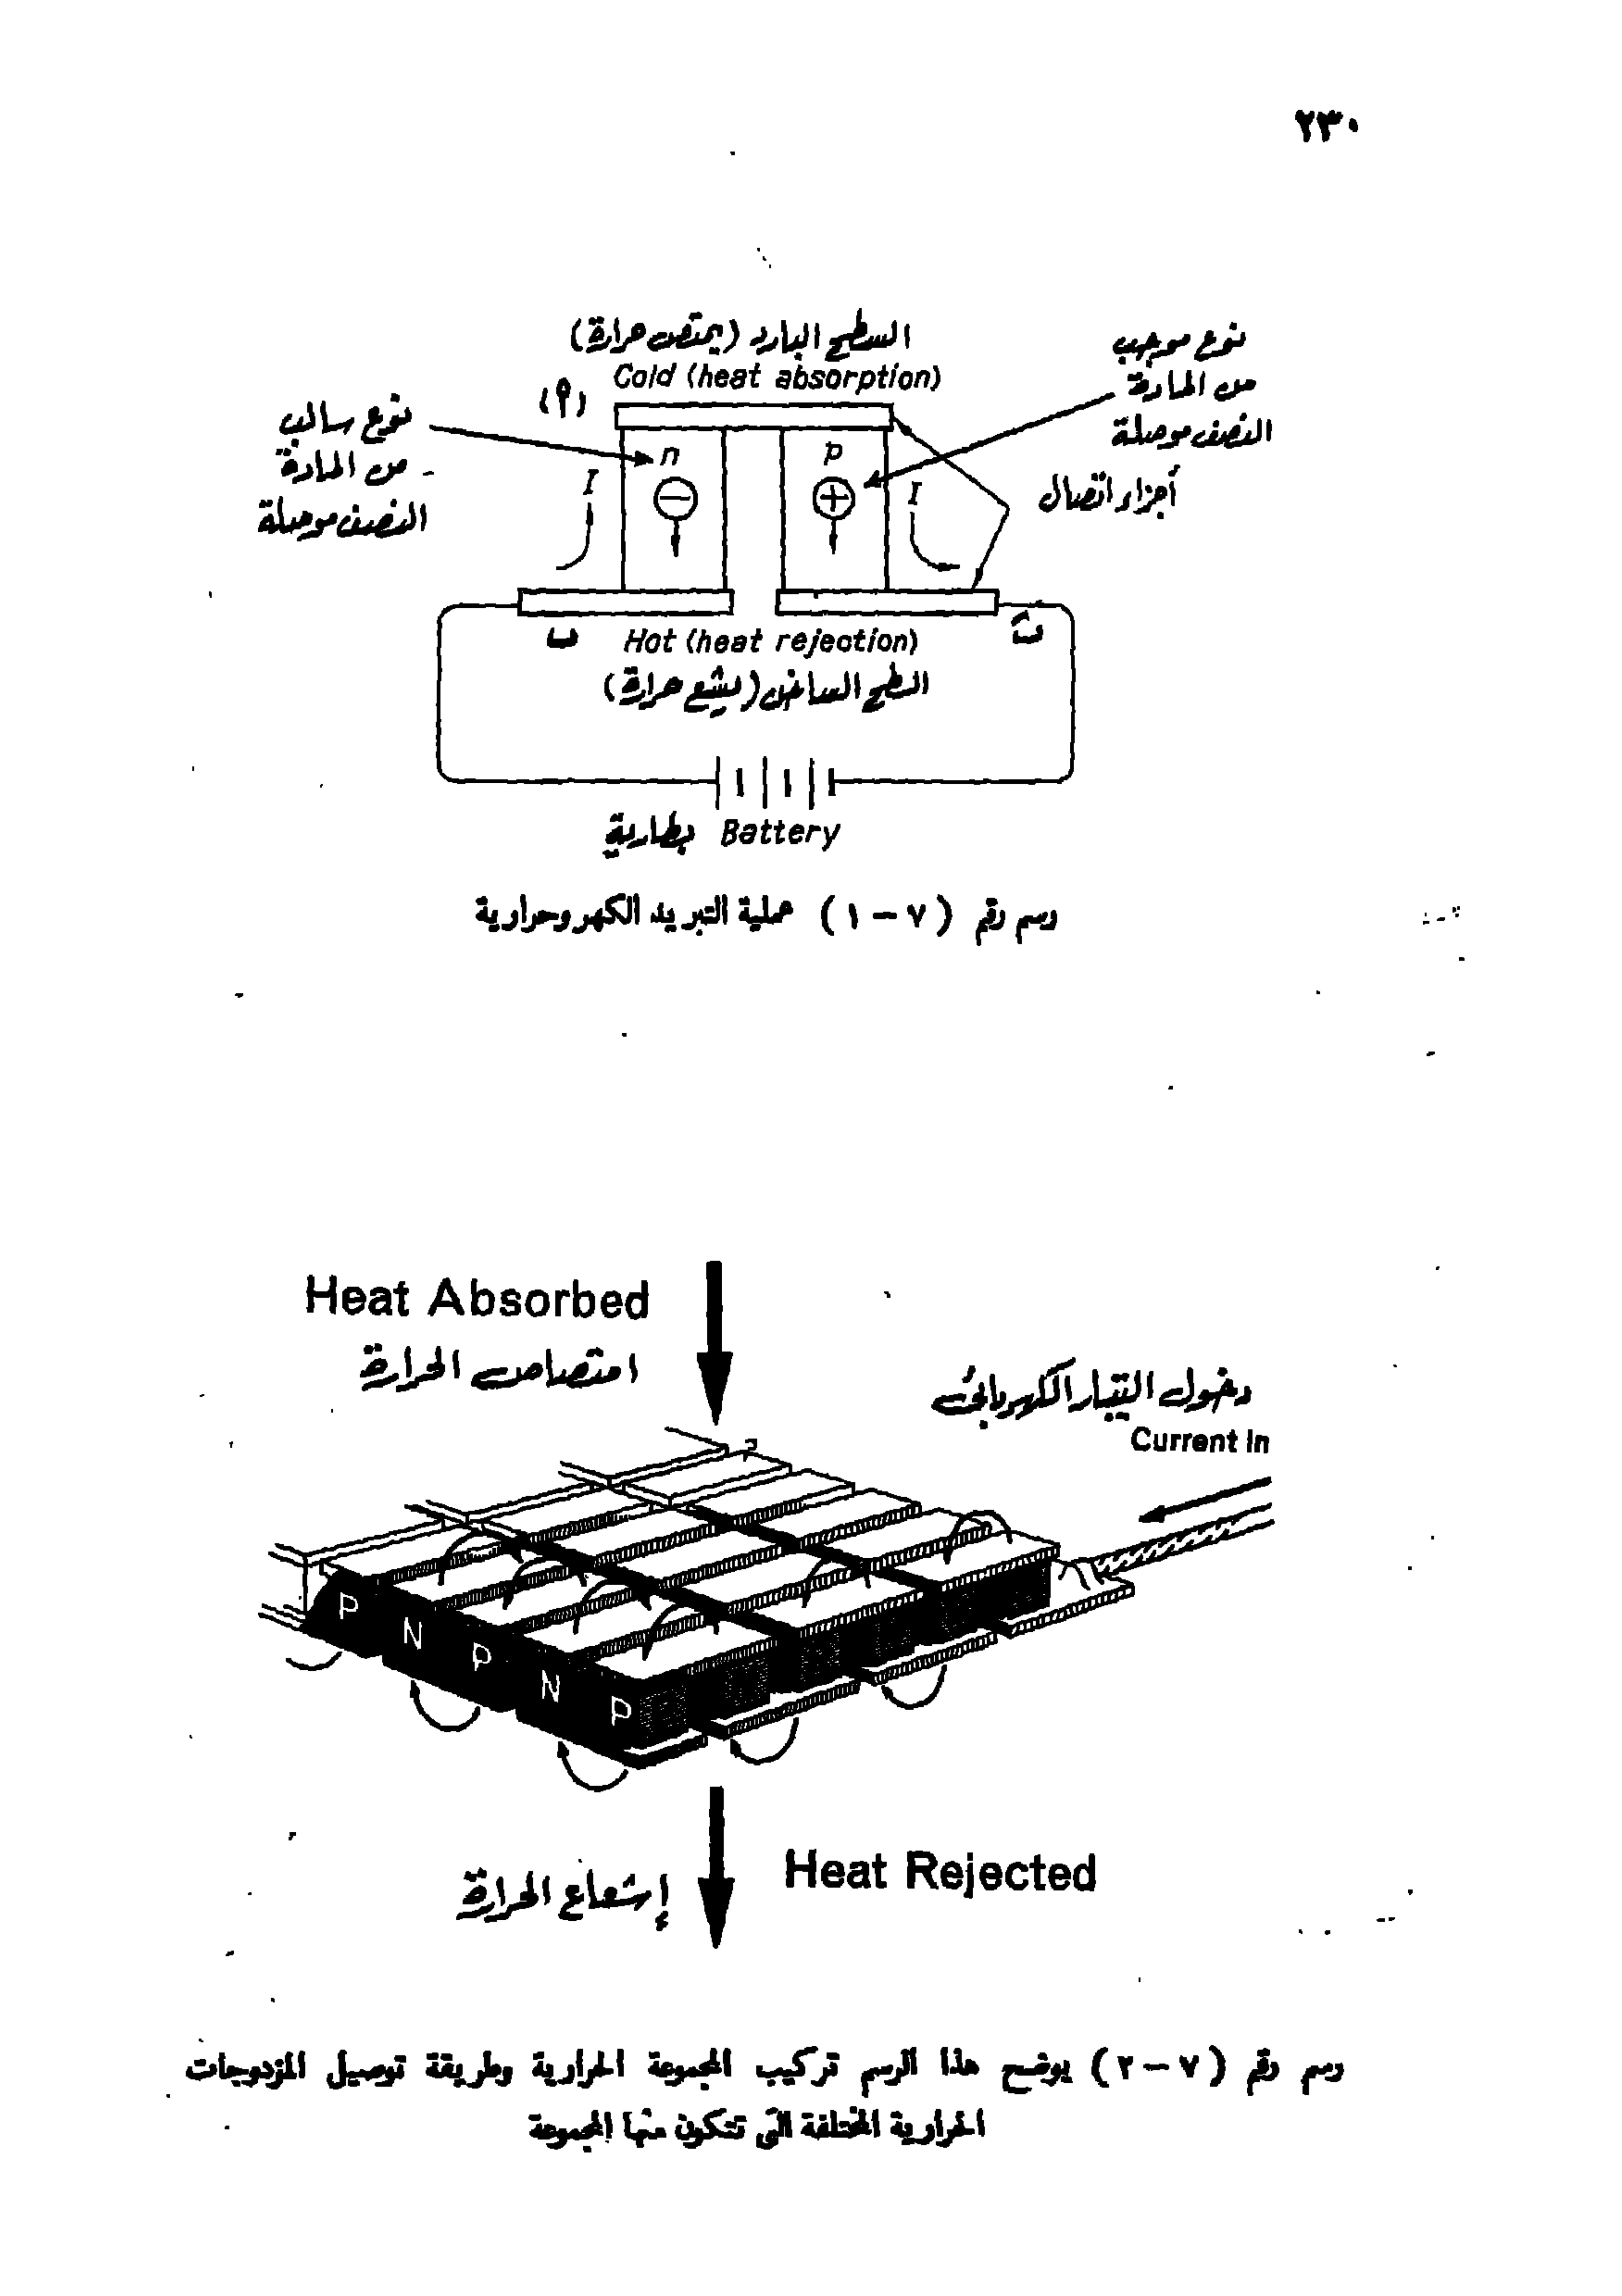 ٢٣٠
السطح البارد (يمتص حرارة)
Cold (heat absorption)
(أ)
نوع موجب
من المادة
النصف موصلة
نوع سالب
من المادة
النصف موصلة
أجزاء اتصال
n
p
I
I
ب
Hot (heat rejection)
السطح الساخن (يشع حرارة)
بطارية Battery
رسم رقم (٧ – ١) عملية التبريد الكهروحرارية
Heat Absorbed
امتصاص الحرارة
دخول التيار الكهربائى
Current In
P
N
P
N
P
Heat Rejected
إشعاع الحرارة
رسم رقم (٧ – ٢) يوضح هذا الرسم تركيب المجموعة الحرارية وطريقة توصيل المزدوجات
الحرارية المختلفة التى تتكون منها المجموعة